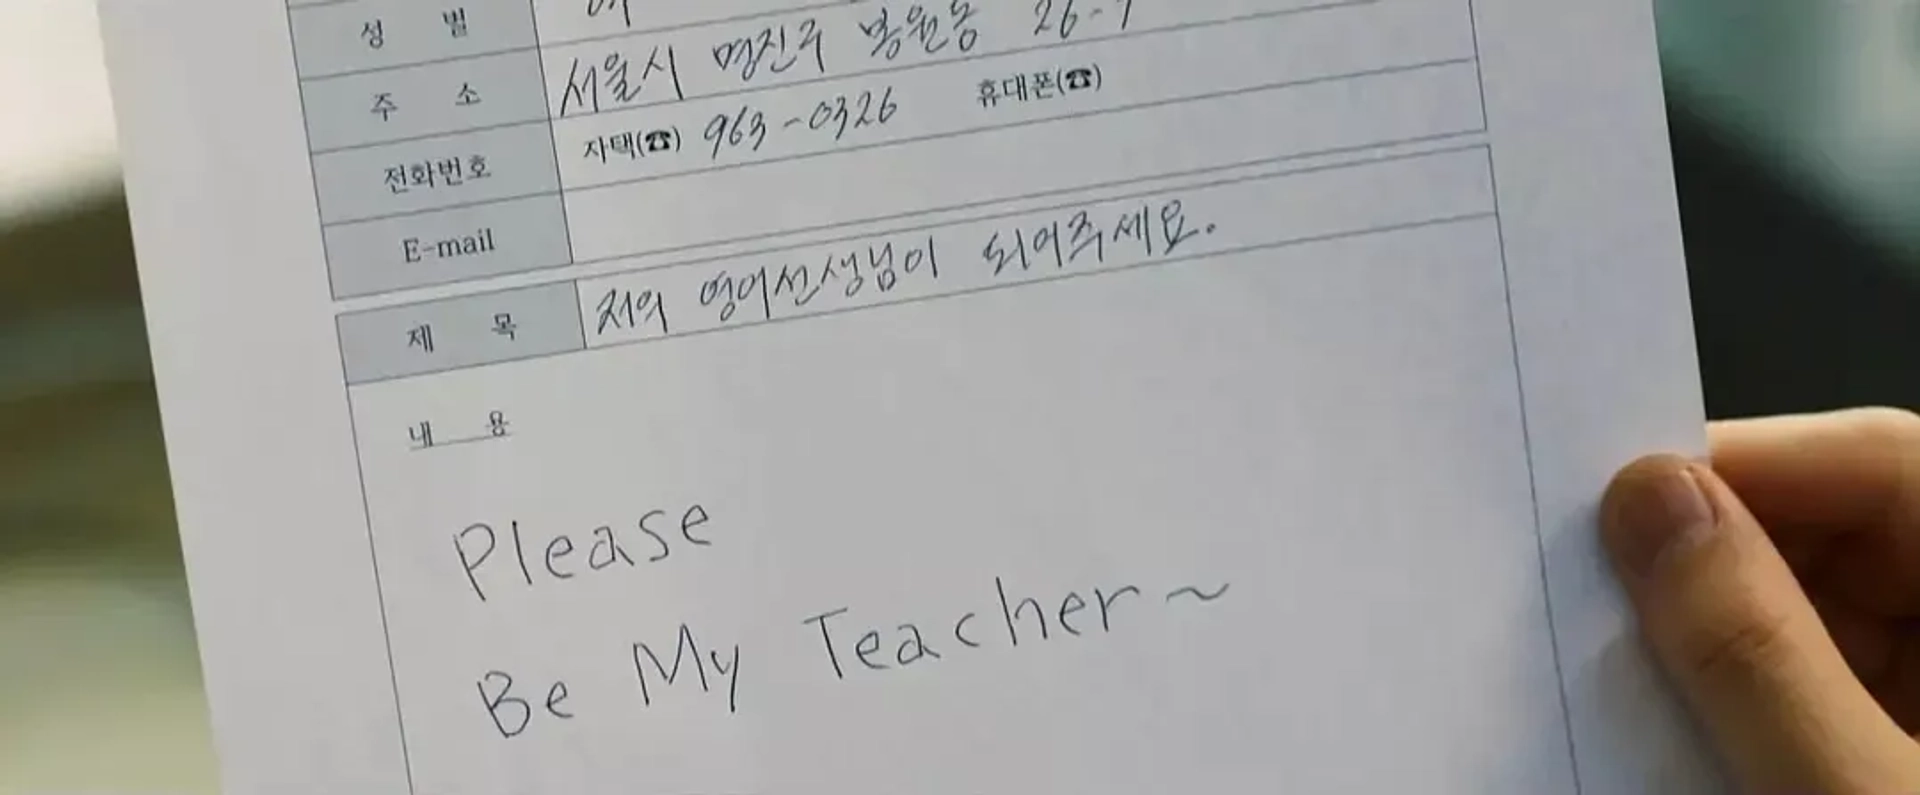 성 별 여
주 소 서울시 명진구 봉원동 26-1
전화번호 자택(☎) 963-0326 휴대폰(☎)
E-mail
제 목 저의 영어선생님이 되어주세요.
내 용
Please
Be My Teacher~